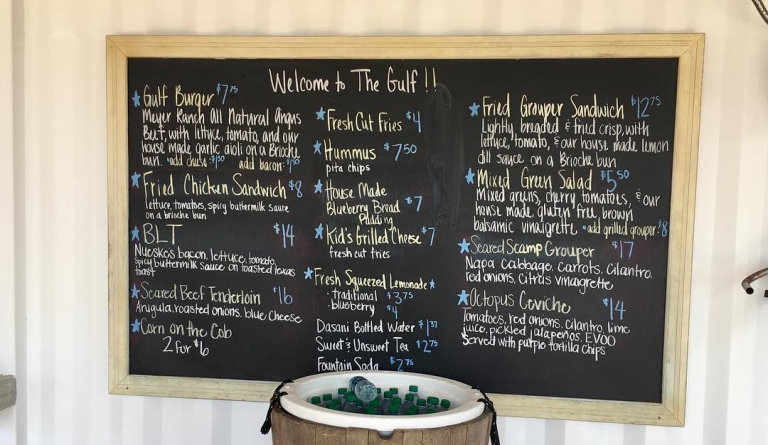 Welcome to The Gulf!!
Gulf Burger $7.75
Meyer Ranch All Natural Angus
Beef, with lettuce, tomato, and our
house made garlic aioli on a Brioche
bun add cheese add bacon
Fried Chicken Sandwich $8
lettuce, tomatoes, spicy buttermilk sauce
on a brioche bun
BLT $14
Nueske's bacon, lettuce, tomato,
spicy buttermilk sauce on toasted texas
toast
Seared Beef Tenderloin $16
Arugula, roasted onions, blue cheese
Corn on the Cob
2 for $6
Fresh Cut Fries $4
Hummus $7.50
pita chips
House Made
Blueberry Bread
Pudding $7
Kid's Grilled Cheese $7
fresh cut fries
Fresh Squeezed Lemonade
· traditional $3.75
· blueberry $4
Dasani Bottled Water
Sweet & Unsweet Tea $2.75
Fountain Soda $2.75
Fried Grouper Sandwich $12.75
Lightly breaded & fried crisp, with
lettuce, tomato, & our house made lemon
dill sauce on a Brioche bun
Mixed Green Salad $5.50
Mixed greens, cherry tomatoes, & our
house made, gluten free, brown
balsamic vinaigrette · add grilled grouper $8
Seared Scamp Grouper $17
Napa Cabbage, Carrots, Cilantro,
red onions, citrus vinaigrette
Octopus Ceviche $14
Tomatoes, red onions, cilantro, lime
juice, pickled jalapeños, EVOO
Served with purple tortilla chips